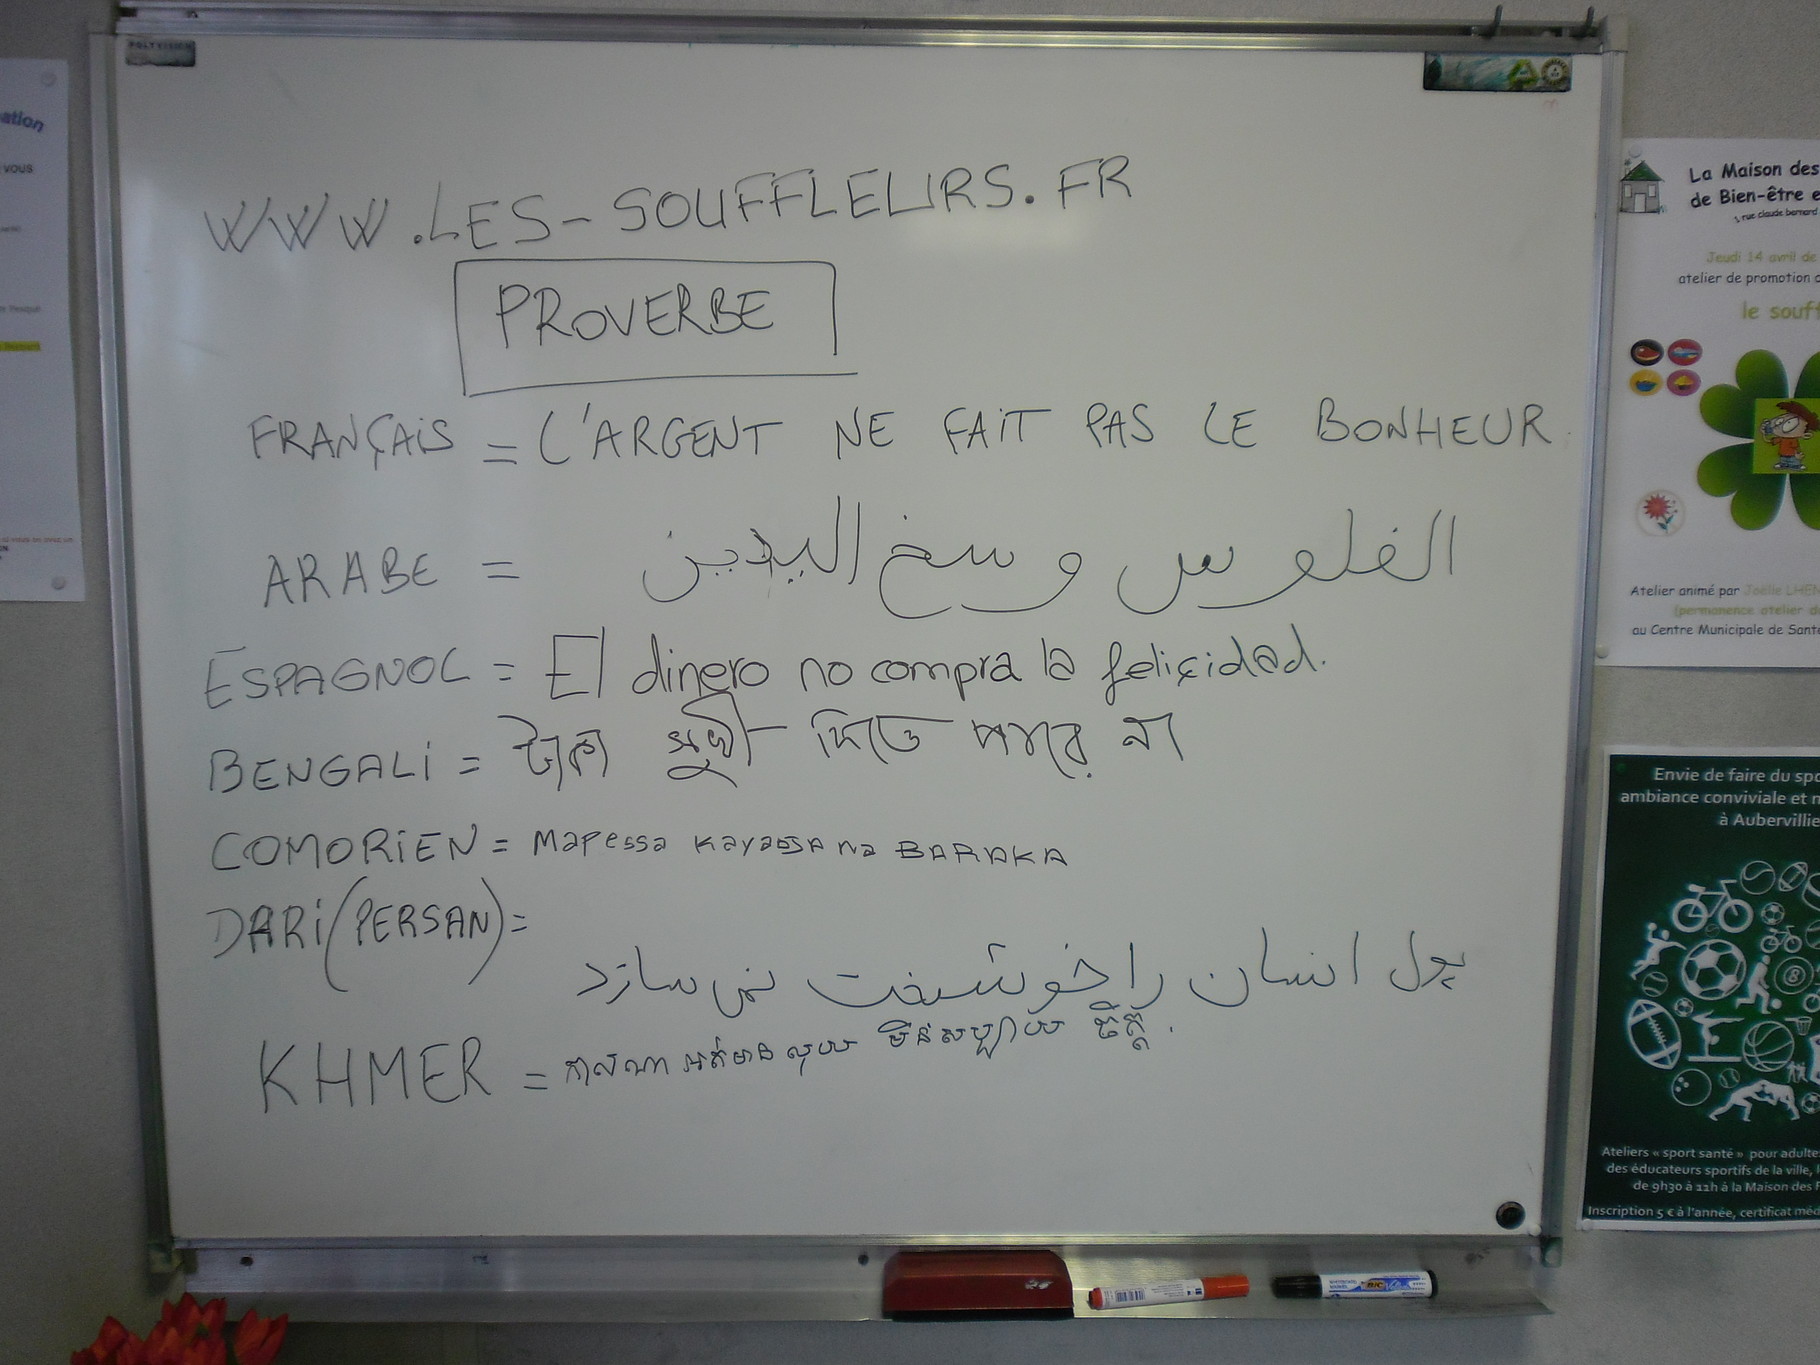 POLYVISION
WWW.LES-SOUFFLEURS.FR
PROVERBE
FRANÇAIS = L'ARGENT NE FAIT PAS LE BONHEUR.
ARABE = الفلوس وسخ اليدين
ESPAGNOL = El dinero no compra la felicidad.
BENGALI = টাকা সুখী দিতে পারে না
COMORIEN = Mapessa Kayaossa na BARAKA
DARI (PERSAN) =
پول انسان را خوشبخت نمی سازد
KHMER = កាលណា អត់មាន លុយ មិនសប្បាយ ចិត្ត.
ation
vous
La Maison des
de Bien-être e
1, rue claude bernard
Jeudi 14 avril de
atelier de promotion d
le souff
Atelier animé par Joëlle LHEN
(permanence atelier du
au Centre Municipale de Sant
Envie de faire du spo
ambiance conviviale et m
à Aubervillie
8
Ateliers « sport santé » pour adulte
des éducateurs sportifs de la ville, l
de 9h30 à 11h à la Maison des P
Inscription 5 € à l'année, certificat méd
BIC